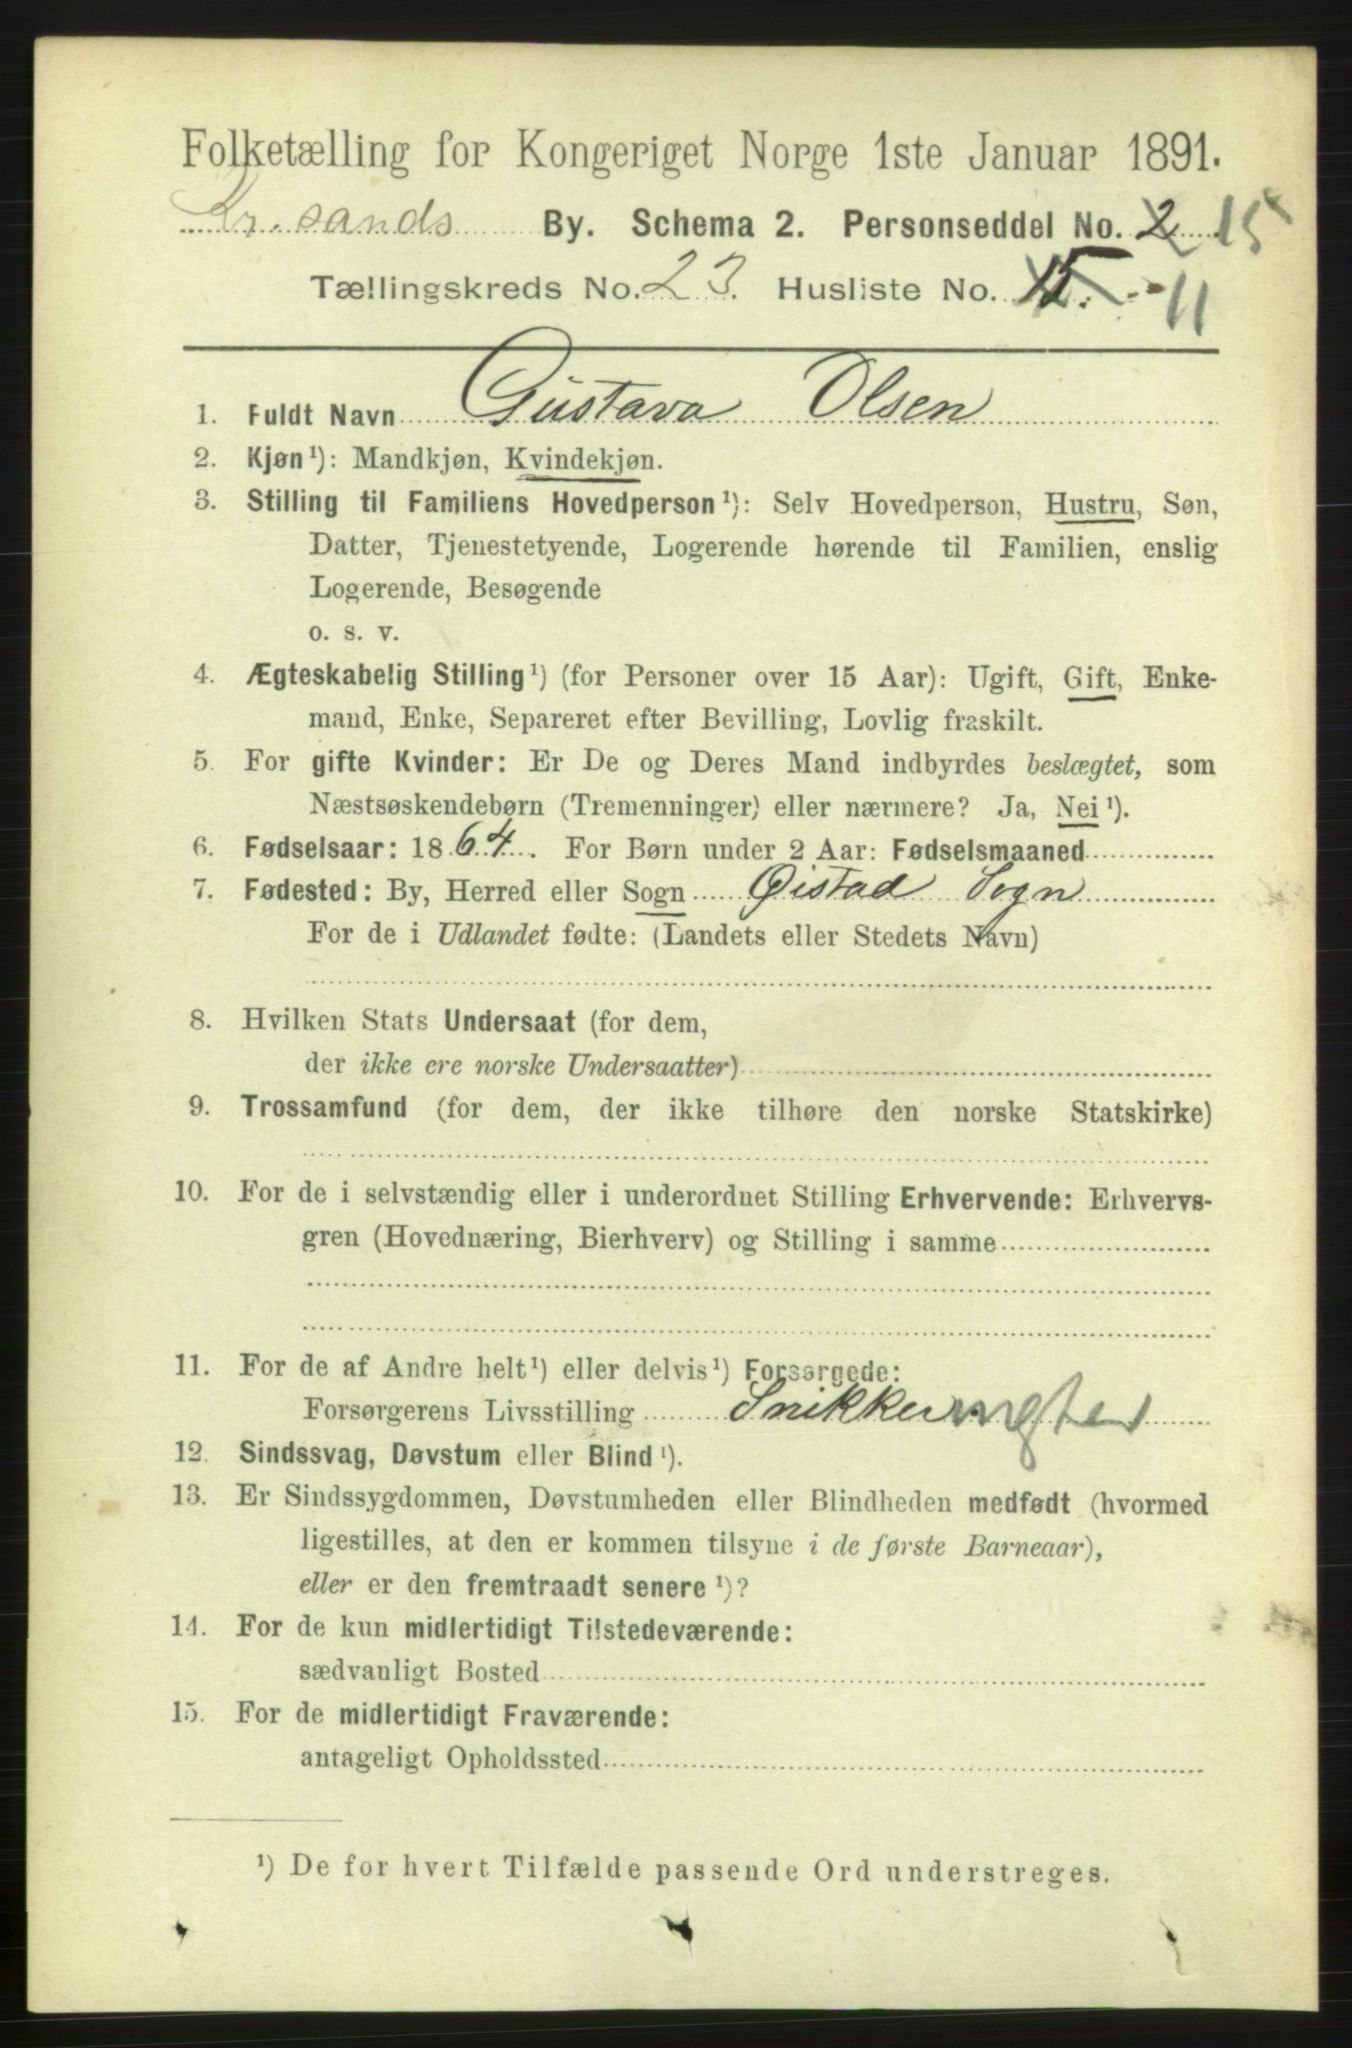 Folketælling for Kongeriget Norge 1ste Januar 1891.
Kr.sands By. Schema 2. Personseddel No. 2 15
Tællingskreds No. 23. Husliste No. 15. 11
1. Fuldt Navn Gustava Olsen
2. Kjøn¹): Mandkjøn, Kvindekjøn.
3. Stilling til Familiens Hovedperson¹): Selv Hovedperson, Hustru, Søn,
Datter, Tjenestetyende, Logerende hørende til Familien, enslig
Logerende, Besøgende
o. s. v.
4. Ægteskabelig Stilling¹) (for Personer over 15 Aar): Ugift, Gift, Enke-
mand, Enke, Separeret efter Bevilling, Lovlig fraskilt.
5. For gifte Kvinder: Er De og Deres Mand indbyrdes beslægtet, som
Næstsøskendebørn (Tremenninger) eller nærmere? Ja, Nei¹).
6. Fødselsaar: 1864. For Børn under 2 Aar: Fødselsmaaned
7. Fødested: By, Herred eller Sogn Øistad Sogn
For de i Udlandet fødte: (Landets eller Stedets Navn)
8. Hvilken Stats Undersaat (for dem,
der ikke ere norske Undersaatter)
9. Trossamfund (for dem, der ikke tilhøre den norske Statskirke)
10. For de i selvstændig eller i underordnet Stilling Erhvervende: Erhvervs-
gren (Hovednæring, Bierhverv) og Stilling i samme
11. For de af Andre helt¹) eller delvis¹) Forsørgede:
Forsørgerens Livsstilling Snikker
12. Sindssvag, Døvstum eller Blind¹).
13. Er Sindssygdommen, Døvstumheden eller Blindheden medfødt (hvormed
ligestilles, at den er kommen tilsyne i de første Barneaar),
eller er den fremtraadt senere¹)?
14. For de kun midlertidigt Tilstedeværende:
sædvanligt Bosted
15. For de midlertidigt Fraværende:
antageligt Opholdssted
¹) De for hvert Tilfælde passende Ord understreges.